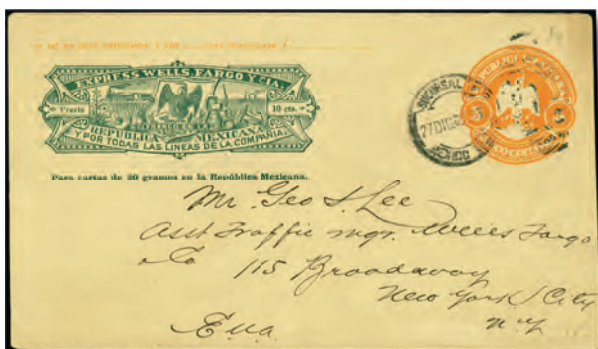 EXPRESS WELLS, FARGO Y CIA.
Franco 10 cts.
REPUBLICA MEXICANA
Y POR TODAS LAS LINEAS DE LA COMPAÑIA.
Para cartas de 20 gramos en la República Mexicana.
SUCURSAL
27 DIC
MEXICO
5 5
Mr. Geo S. Lee
Asst Traffic mgr. Wells Fargo
& Co 115 Broadway
New York City
N.Y.
E.u.a.